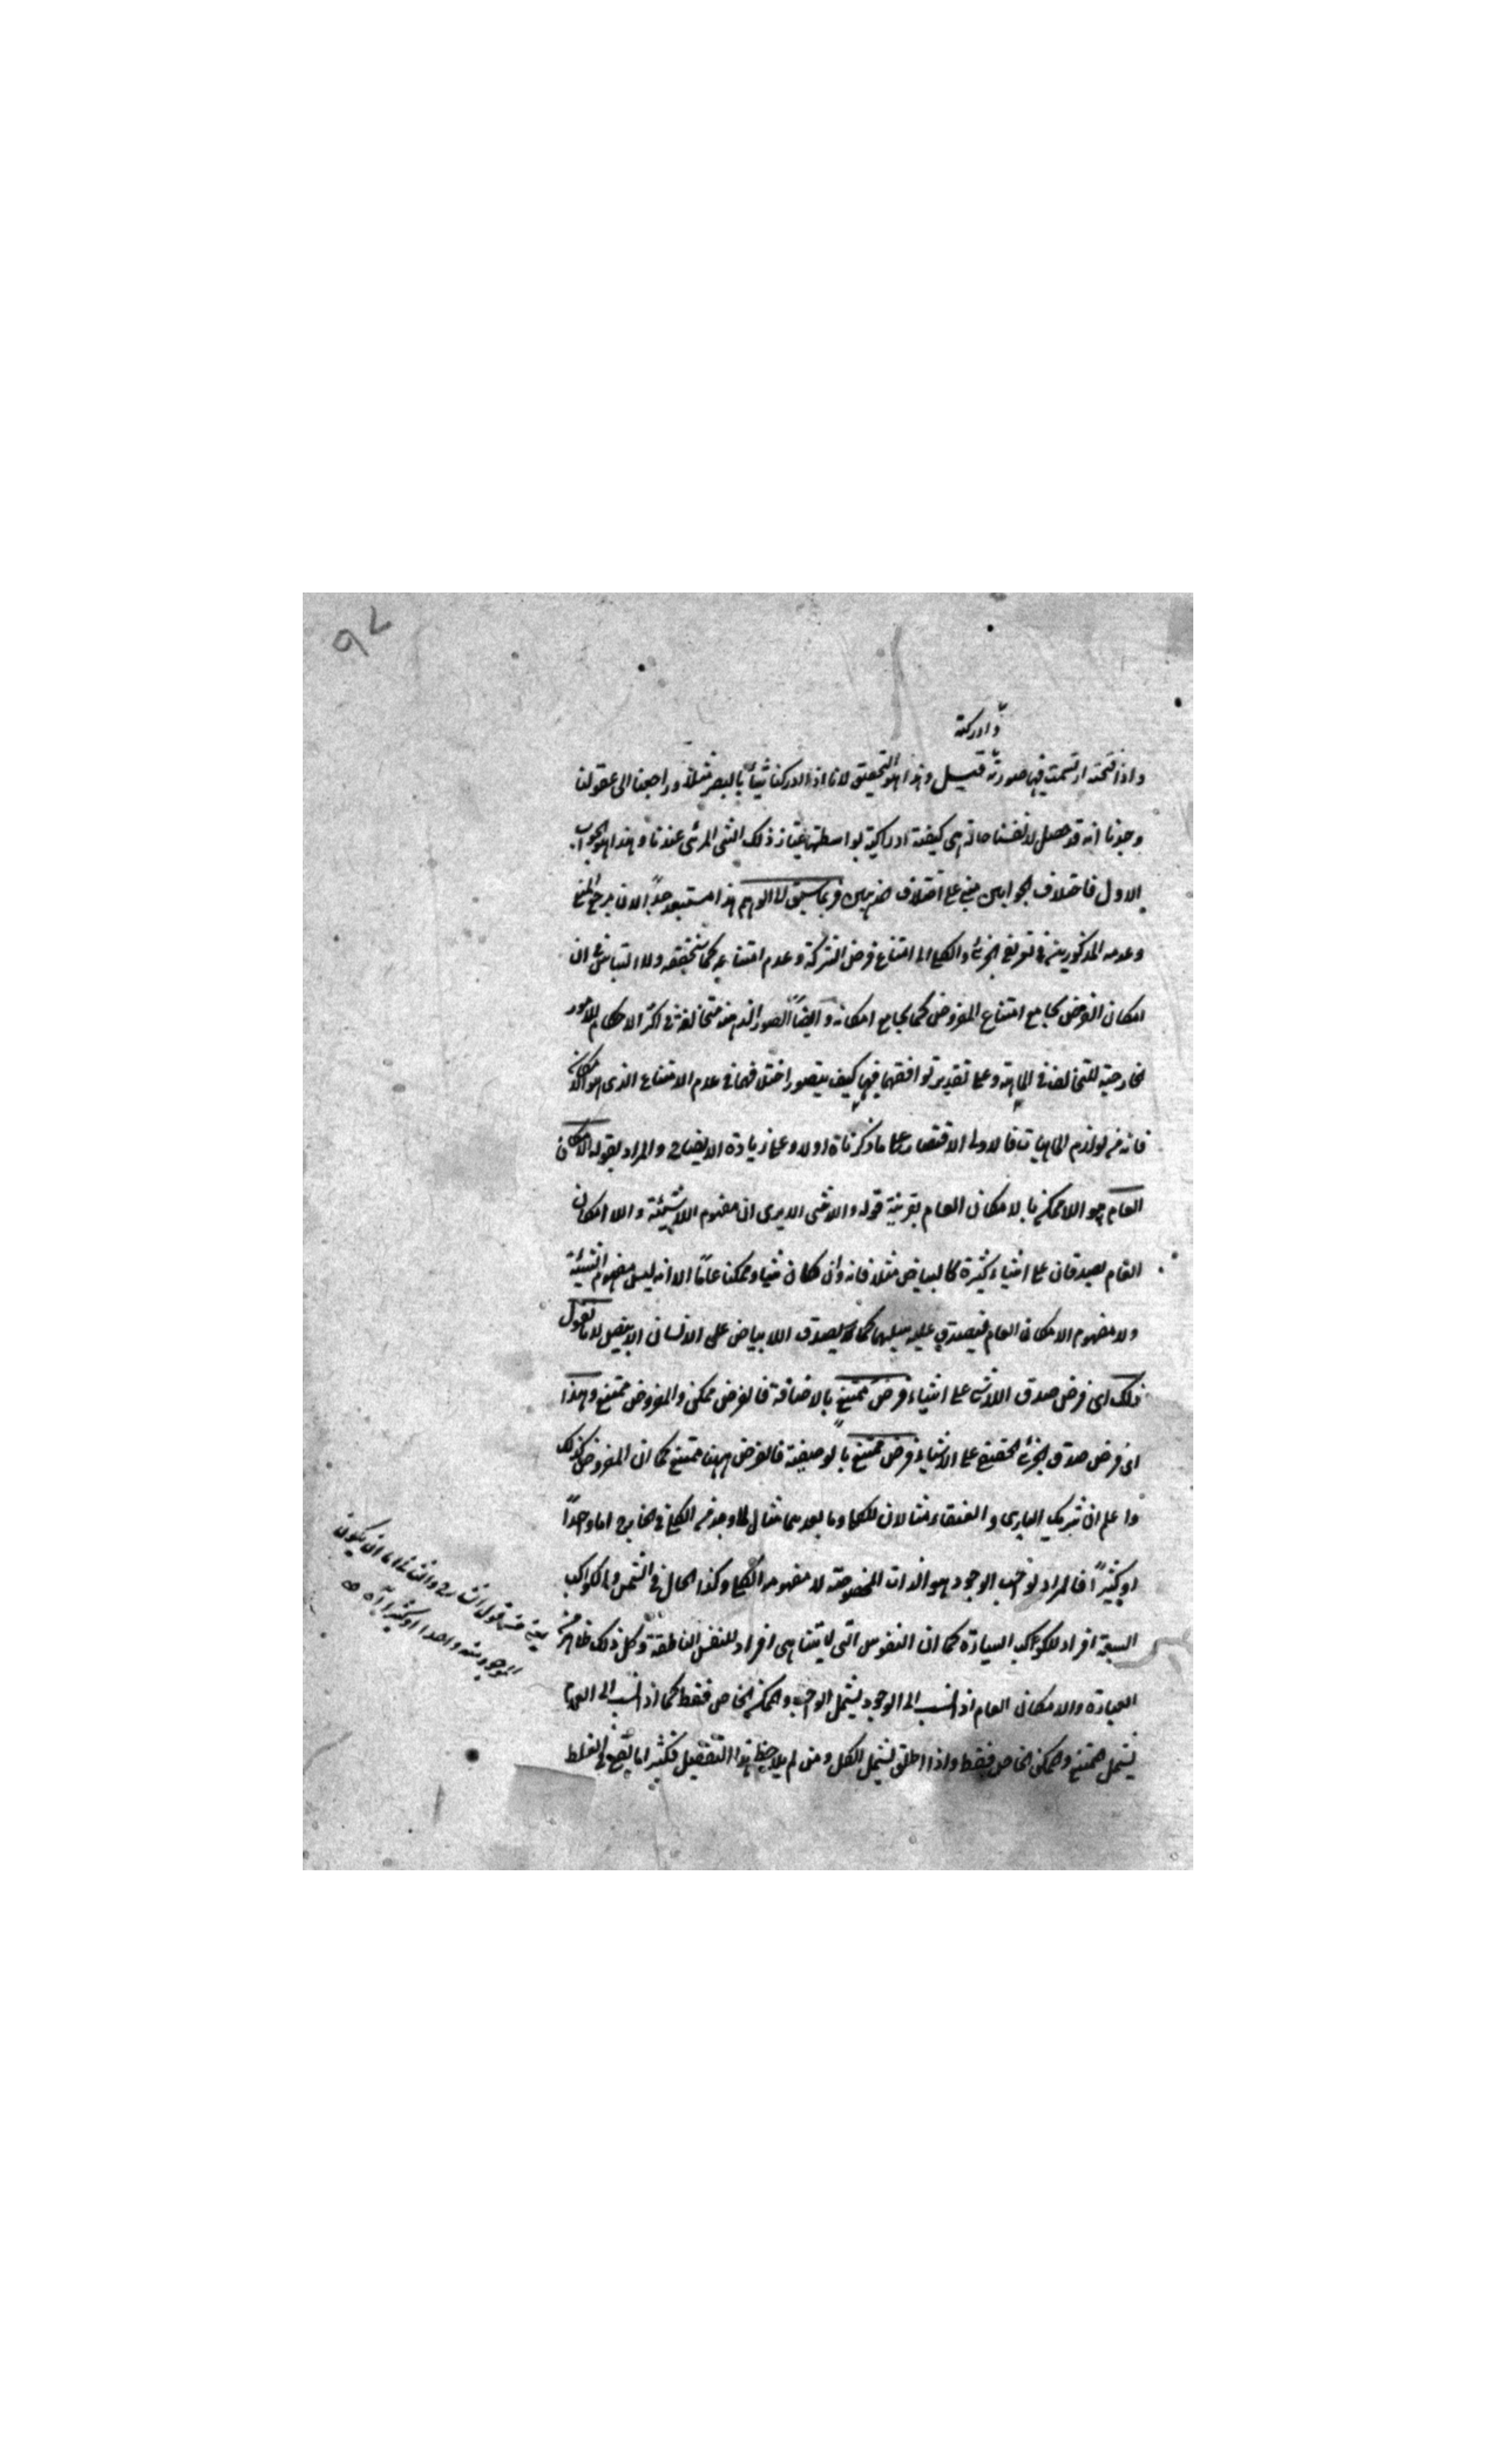 ٩٢
وادركته
واذا فتحته ارتسمت فيها صورته قيل وهذا هو التحقيق لانا اذا ادركنا شيئاً بالبصر مثلا وراجعنا الى عقولنا
وجدنا انه قد حصل لانفسنا حالة هى كيفية ادراكية بواسطتها يمتاز ذلك الشئ المرئى عندنا وهذا هو الجواب
الاول فاختلاف الجوابين مبنى على اختلاف المذهبين وبما سبق الوهم هذا مستبعد جداً الا ان مرجع المنع
وعدمه المذكورين فى تعريف الجزئى والكلى الى امتناع فرض الشركة وعدم امتناعه كما ستحققه ولا التباس فى ان
امكان الفرض يجامع امتناع المفروض كما يجامع امكانه وايضاً الصور الذهنية متخالفة فى اكثر الاحكام للامور
الخارجية للتخالف فى الماهية وعلى تقدير توافقهما فيها كيف يتصور اختلافهما فى عدم الامتناع الذى هو الامكان
فانه من لوازم الماهيات فالاولى الاقتصار على ما ذكرناه اولا وعلى زيادة الايضاح والمراد بقوله الامكان
العام هو اللاممكن بالامكان العام بقرينة قوله واللاشئ الا يرى ان مفهوم اللاشيئية واللا امكان
العام يصدقان على اشياء كثيرة كالبياض مثلا فانه وان كان شيئا وممكنا عاماً الا انه ليس مفهوم الشيئية
ولا مفهوم الامكان العام فيصدق عليه سلبهما كما يصدق اللابياض على الانسان الابيض لانا نقول
ذلك اى فرض صدق اللاشئ على اشياء فرض ممتنع بالاضافة فالفرض ممكن والمفروض ممتنع وهذا
اى فرض صدق الجزئى الحقيقى على الاشياء فرض ممتنع بالوصفية فالفرض ههنا ممتنع كما ان المفروض كذلك
واعلم ان شريك البارى والعنقاء مثالان للكلى وما بعدهما مثال لما وجد من الكلى فى الخارج اما واحداً
او كثيراً فالمراد بواجب الوجود هو الذات المخصوصة لا مفهومه الكلى وكذا الحال فى الشمس والكواكب
السبعة افراد للكواكب السيارة كما ان النفوس التى لا يتناهى افراد للنفس الناطقة وكل ذلك ظاهر من
العبارة والامكان العام اذا نسب الى الوجود يشمل الواجب والممكن الخاص فقط كما اذا نسب الى العدم
يشمل الممتنع والممكن الخاص فقط واذا اطلق يشمل الكل ومن لم يلاحظ هذا التفصيل فكثيرا ما يقع فى الغلط
قول الشارح والثانى اما ان يكون
الموجود منه واحدا او كثيرا آه